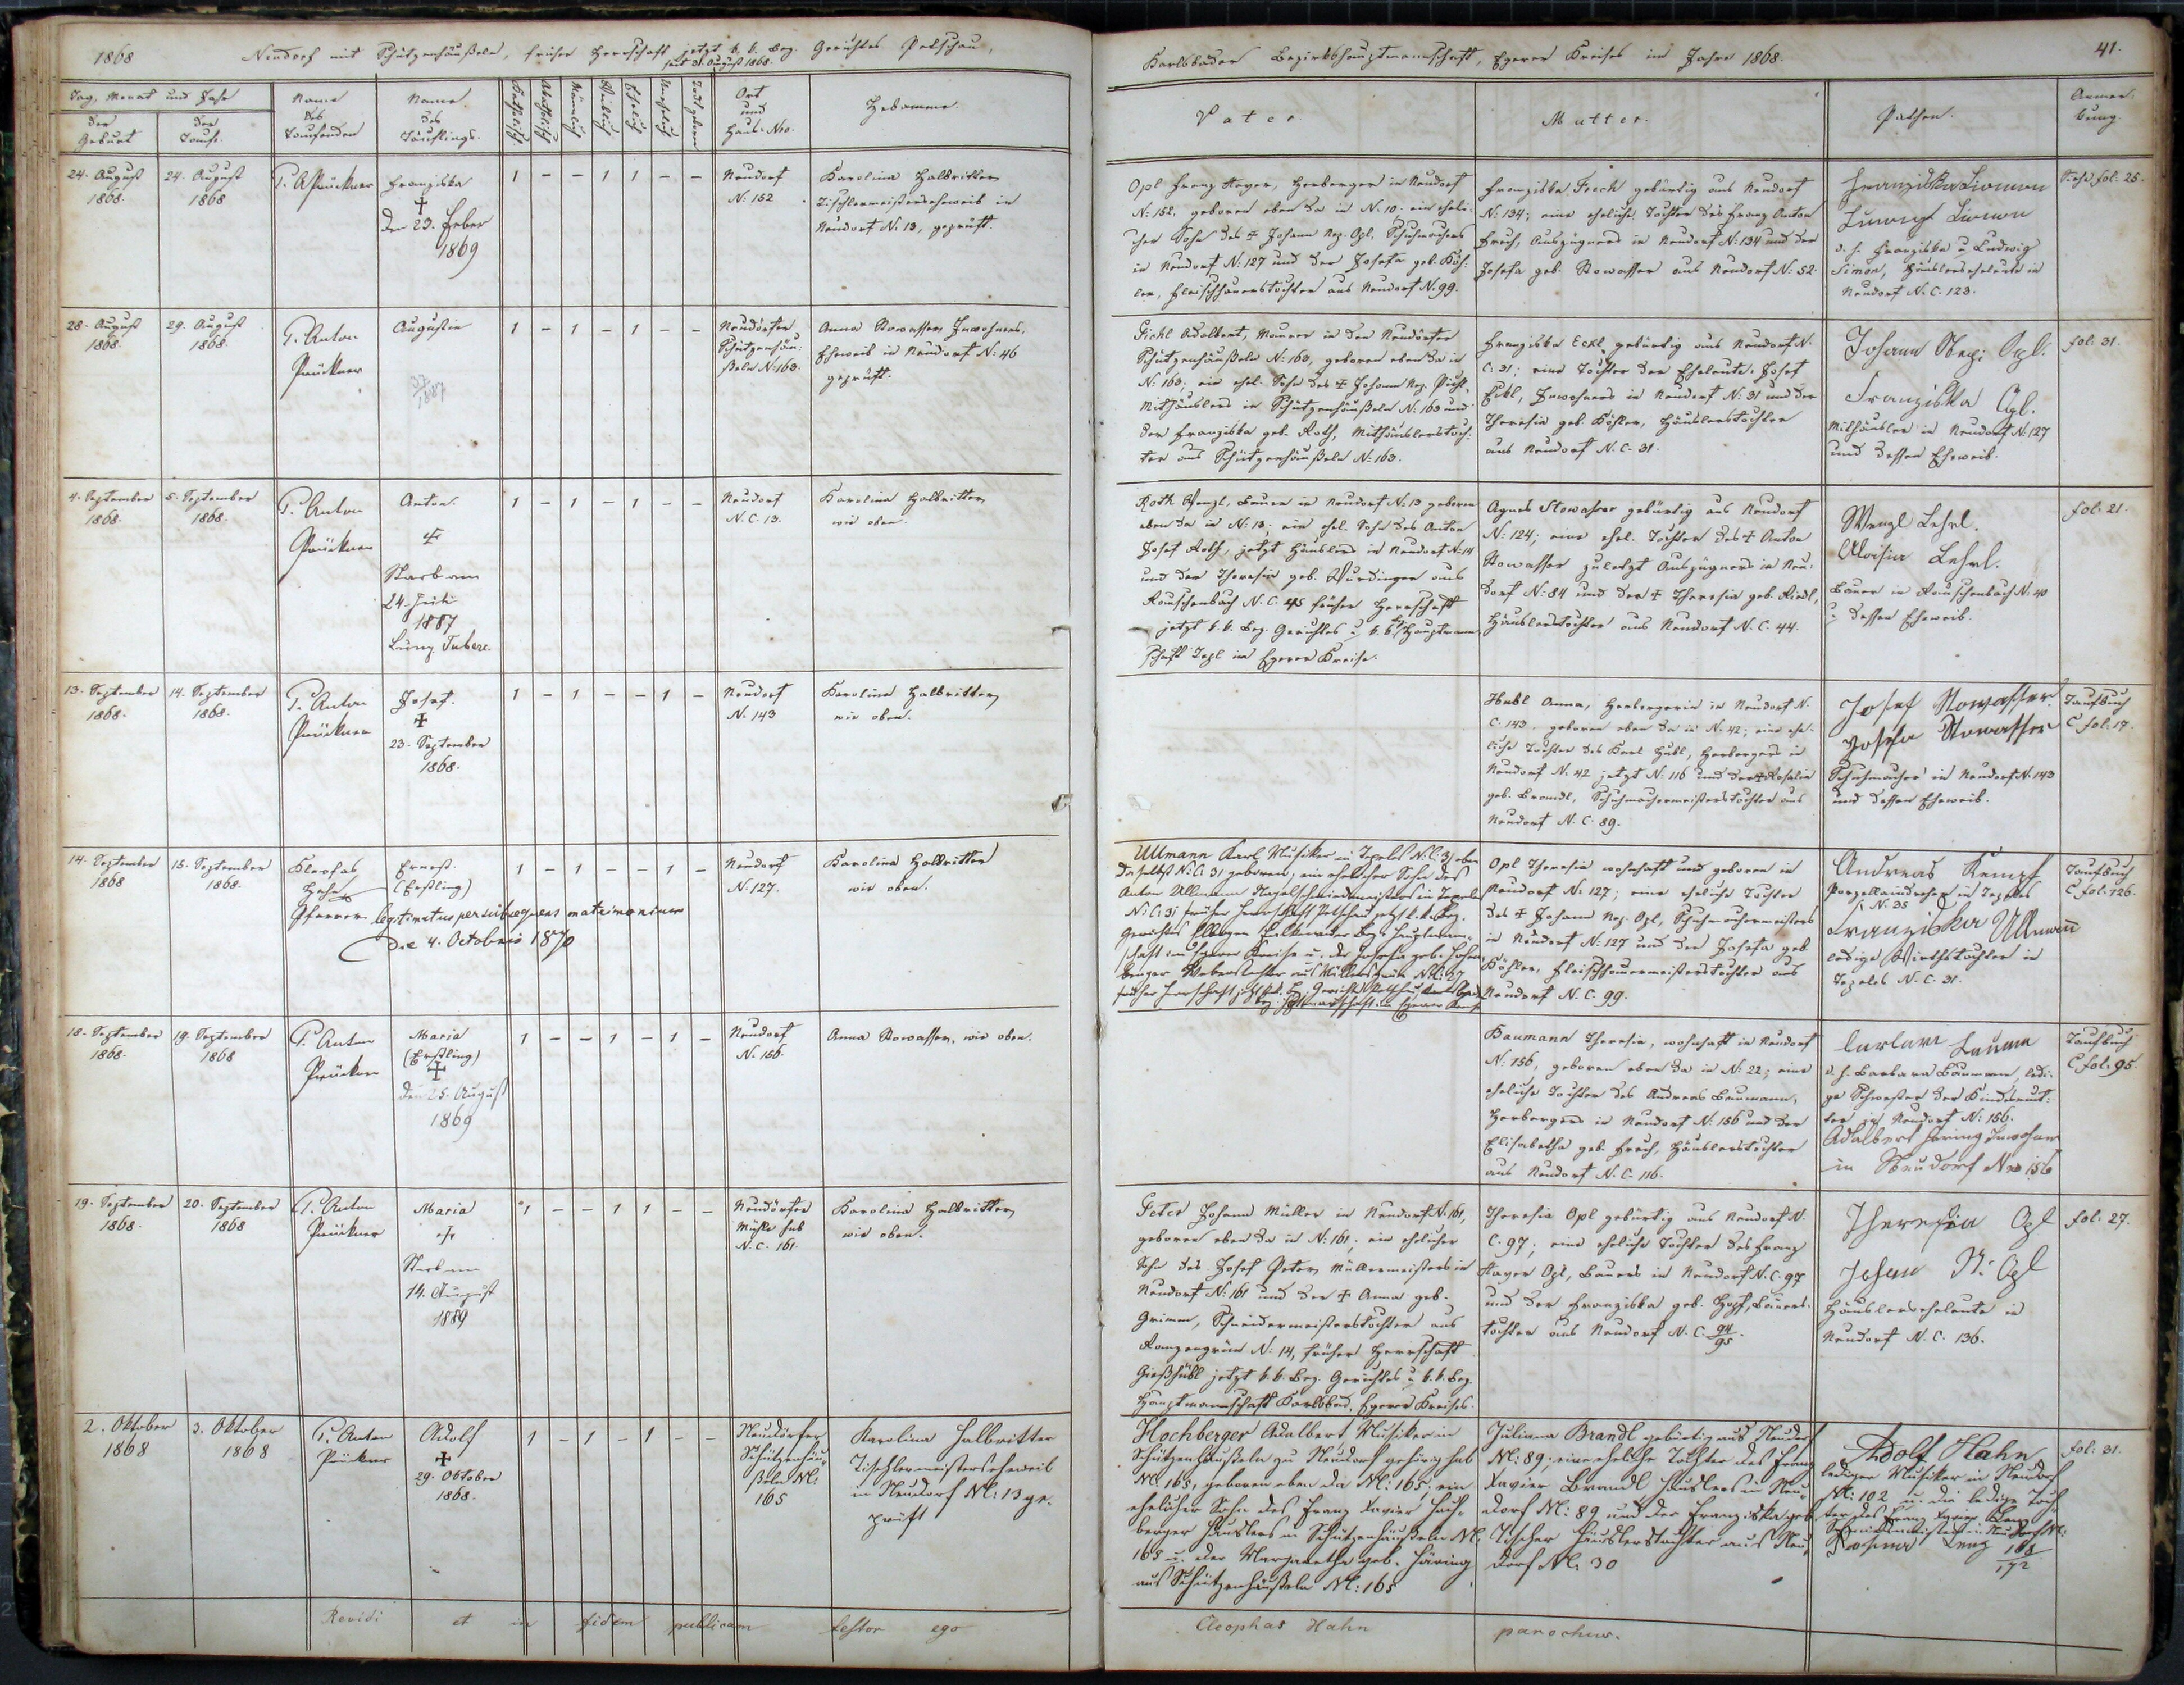 1868 Neudorf mit Schützenhäußeln, früher Herrschaft jetzt k. k. Bez. Gerichtes Petschau,
seit 31. August 1868.
Karlsbader Bezirkshauptmannschaft, Egerer Kreises im Jahre 1868.
41.
Tag, Monat und Jahr
der Geburt
der Taufe
Name des Taufenden
Name des Täuflings
Katholisch
Akatholisch
Männlich
Weiblich
Ehelich
Unehelich
Todtgeboren
Ort und Haus-Nro.
Hebamme.
Vater.
Mutter.
Pathen.
Anmerkung.
24. August 1868.
24. August 1868
P. A Prückner
Franziska
†
den 23. Feber
1869
1 - - 1 1 - -
Neudorf
N. 152
Karolina Halbritter
Tischlermeisterseheweib in
Neudorf N. 13, geprüft.
Opl Franz Xaver, Herberger in Neudorf
N. 152, geboren eben da in N. 10. ein eheli-
cher Sohn des † Johann Nep. Opl, Schuhmachers
in Neudorf N: 127 und der Josefa geb. Köh-
ler, Fleischhauerstochter aus Neudorf N. 99.
Franziska Frech gebürtig aus Neudorf
N: 134; eine eheliche Tochter des Franz Anton
Frech, Auszügners in Neudorf N: 134 und der
Josefa geb. Stowasser aus Neudorf N: 52.
Franziska Simon
Ludwig Simon
d. h. Franziska u Ludwig
Simon, Häuslerseheleute in
Neudorf N. C. 123.
Siehe fol. 25.
28. August 1868.
29. August 1868.
P. Anton
Prückner
Augustin
37/1887
1 - 1 - 1 - -
Neudörfer
Schützenhäu-
ßeln N: 163.
Anna Stowasser Inwohners-
Eheweib in Neudorf N: 46
geprüft.
Pichl Adalbert, Maurer in den Neudörfer
Schützenhäußeln N: 163, geboren eben da in
N: 163; ein ehel. Sohn des † Johann Nep. Pichl,
Mithäuslers in Schützenhäußeln N: 163 und
der Franziska geb. Roth, Mithäuslerstoch-
ter aus Schützenhäußeln N: 163.
Franziska Eckl gebürtig aus Neudorf N.
C. 31; eine Tochter der Eheleute Josef
Eckl, Inwohners in Neudorf N: 31 und der
Theresia geb. Köhler, Häuslerstochter
aus Neudorf N. C. 31.
Johann Nep: Opl.
Franziska Opl.
Mithäusler in Neudorf N: 127
und dessen Eheweib.
fol. 31.
4. September 1868.
5. September 1868.
P. Anton
Prückner
Anton.
†
Starb am
24. Juli
1887
Lung. Tuberc.
1 - 1 - 1 - -
Neudorf
N. C. 13.
Karolina Halbritter
wie oben.
Roth Wenzl, Bauer in Neudorf N. 13 geboren
eben da in N: 13; ein ehel. Sohn des Anton
Josef Roth, jetzt Häuslers in Neudorf N: 14
und der Theresia geb. Wurdinger aus
Rauschenbach N. C. 45 früher Herrschaft
jetzt k. k. Bez. Gerichtes u. k. k. Bez. Hauptmann
schaft Tepl im Egerer Kreise.
Agnes Stowasser gebürtig aus Neudorf
N: 124; eine ehel. Tochter des † Anton
Stowasser zuletzt Auszügners in Neu-
dorf N: 84 und der † Theresia geb. Riedl,
Häuslerstochter aus Neudorf N. C. 44.
Wenzl Lehrl.
Aloisia Lehrl.
Bauer in Rauschenbach N: 40
u dessen Eheweib.
fol. 21.
13. September 1868.
14. September 1868.
P. Anton
Prückner
Josef.
†
23. September
1868.
1 - 1 - - 1 -
Neudorf
N. 143
Karolina Halbritter
wie oben.
Hubl Anna, Herbergerin in Neudorf N.
C. 143. geboren eben da in N. 42; eine ehe-
liche Tochter des Karl Hubl, Herbergers in
Neudorf N. 42 jetzt N: 116 und der † Rosalia
geb. Brandl, Schuhmachermeisterstochter aus
Neudorf N. C. 89.
Josef Stowasser.
Josefa Stowasser
Schuhmacher in Neudorf N. 143
und dessen Eheweib.
Taufbuch
C fol. 17.
14. September 1868
15. September 1868.
Kleofas
Hahn
Pfarrer
Ernest.
(Erstling)
legitimatus per subsequens matrimonium
die 4. Octobris 1870
1 - 1 - - 1 -
Neudorf
N. 127.
Karolina Halbritter
wie oben.
Ullmann Karl Musiker in Tepeles N. C. 31 eben
daselbst N: C: 31 geboren; ein ehelicher Sohn des
Anton Ullmann Nagelschmiedmeisters in Tepeles
N: C: 31 früher Herrschaft Petschau jetzt k. k. Bez.
Gerichtes Elbogen Falkenauer Bez. Hauptmann-
schaft im Egerer Kreise u. der Josefa geb.
Weberstochter aus Müllersgrün N: C: 27
früher Herrschaft jetzt k. k. Bez. Gerichts Petschau Karlsbader
Bez. Hptmannschaft im Egerer Kreise
Opl Theresia wohnhaft und geboren in
Neudorf N. 127; eine eheliche Tochter
des † Johann Nep. Opl, Schuhmachermeisters
in Neudorf N: 127 und der Josefa geb.
Köhler, Fleischhauermeisterstochter aus
Neudorf N. C. 99.
Andreas Kempf
Porzellaindreher in Tepeles
N. 35
Franziska Ullmann
ledige Wirthstochter in
Tepeles N. C. 31.
Taufbuch
C fol. 126.
18. September 1868.
19. September 1868
P. Anton
Prückner
Maria
(Erstling)
†
den 25. August
1869
1 - - 1 - 1 -
Neudorf
N. 156.
Anna Stowasser, wie oben.
Baumann Theresia, wohnhaft in Neudorf
N: 156, geboren eben da in N: 22; eine
eheliche Tochter des Andreas Baumann,
Herbergers in Neudorf N: 156 und der
Elisabetha geb. Frech, Häuslerstochter
aus Neudorf N. C. 116.
d. h. Barbara Baumann, ledi-
ge Schwester der Kindsmut-
ter in Neudorf N: 156.
Adalbert Häring Inwohner
in Neudorf Nro 156
Taufbuch
C fol. 95.
19. September 1868.
20. September 1868
P. Anton
Prückner
Maria
†
Starb am
14. August
1889
1 - - 1 1 - -
Neudörfer
Mühle sub
N. C. 161.
Karolina Halbritter
wie oben.
Peter Johann Müller in Neudorf N. 161,
geboren eben da in N: 161; ein ehelicher
Sohn des Josef Peter Müllermeisters in
Neudorf N: 161 und der † Anna geb.
Grimm, Schneidermeisterstochter aus
Ranzengrün N: 14, früher Herrschaft
Gießhübl jetzt k. k. Bez. Gerichtes u k. k. Bez.
Hauptmannschaft Karlsbad, Egerer Kreises.
Theresia Opl gebürtig aus Neudorf N.
C. 97; eine eheliche Tochter des Franz
Xaver Opl, Bauers in Neudorf N. C. 97
und der Franziska geb. Hopf, Bauers-
tochter aus Neudorf N. C. 94/95.
Theresia Opl
Johann N: Opl
Häuslerseheleute in
Neudorf N. C. 136.
fol. 27.
2. Oktober 1868
3. Oktober 1868
P. Anton
Prückner
Adolf
†
29. Oktober
1868.
1 - 1 - 1 - -
Neudörfer
Schützenhäu-
ßeln N:
165
Karolina Halbritter
Tischlermeisterseheweib
in Neudorf N: 13 ge-
prüft
Hochberger Adalbert Musiker in
Schützenhäußeln zu Neudorf gehörig sub
N: 165, geboren eben da N: 165; ein
ehelicher Sohn des Franz Xavier Hoch-
berger Häuslers in Schützenhäußeln N:
165 u. der Margaretha geb. Häring
aus Schützenhäußeln N: 165
Juliana Brandl gebürtig aus Neudorf
N: 89; eine eheliche Tochter des Franz
Xavier Brandl Häuslers in Neu-
dorf N: 89 und der Franziska geb.
Tischer Häuslerstochter aus Neu-
dorf N: 30
Adolf Hahn
lediger Musiker in Neudorf
N: 102 u. die ledige Toch-
ter des Franz Xavier Lenz
Schmiedmeister in Neudorf N:
Rosina Lenz 168/172
fol: 31.
Revidi et in fidem publicam testor ego Cleophas Hahn parochus.